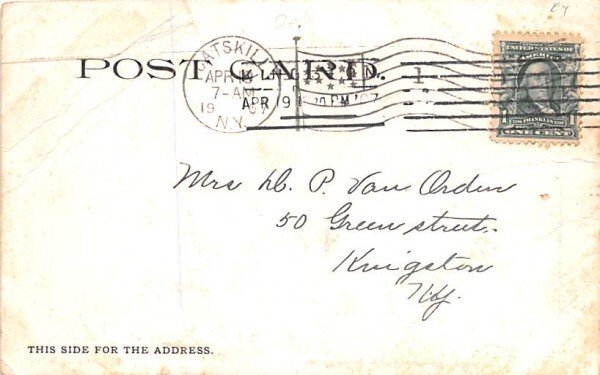 EY
POST CARD.
CATSKILL
APR
7-AM
19 07
N.Y.
APR 19
PM '07
1
UNITED STATES OF
AMERICA
FRANKLIN
ONE CENT
Mrs D. P. Van Orden
50 Green street.
Kingston
NY.
THIS SIDE FOR THE ADDRESS.